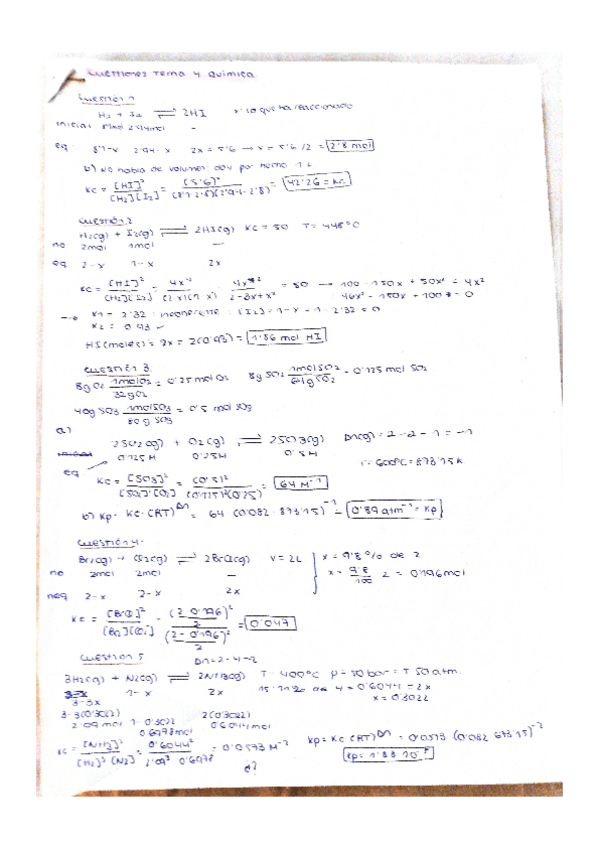 Cuestiones Tema 4 Química
Cuestión 1
H2 + I2 ⇌ 2HI x: lo que ha reaccionado
inicial 8'1mol 2'94mol -
eq 8'1-x 2'94-x 2x = 5'6 → x = 5'6/2 = 2'8 mol
b) No habla de volumen: por 1L
Kc = [HI]² / [H2][I2] = (5'6)² / (8'1-2'8)(2'94-2'8) = 42'26 = Kc
Cuestión 2
H2(g) + I2(g) ⇌ 2HI(g) Kc = 50 T = 448°C
no 2mol 1mol -
eq 2-x 1-x 2x
Kc = [HI]² / [H2][I2] = 4x² / (2-x)(1-x) = 4x² / 2-3x+x² = 50 → 100-150x+50x² = 4x²
46x² - 150x + 100 = 0
→ x1 = 2'32 : incoherente : [I2] = 1-x = 1-2'32 < 0
x2 = 0'93 ✓
HI(moles) = 2x = 2(0'93) = 1'86 mol HI
Cuestión 3
8g O2 1mol O2 / 32g O2 = 0'25 mol O2 8g SO2 1mol SO2 / 64g SO2 = 0'125 mol SO2
40g SO3 1mol SO3 / 80g SO3 = 0'5 mol SO3
a)
2SO2(g) + O2(g) ⇌ 2SO3(g) Δn(g) = 2-2-1 = -1
eq 0'125M 0'25M 0'5M T = 600°C = 873'15K
Kc = [SO3]² / [SO2]²[O2] = (0'5)² / (0'125)²(0'25) = 64 M⁻¹
b) Kp = Kc·(RT)^Δn = 64 (0'082·873'15)⁻¹ = 0'89 atm⁻¹ = Kp
Cuestión 4
Br2(g) + Cl2(g) ⇌ 2BrCl(g) V = 2L x = 9'8% de 2
no 2mol 2mol - x = 9'8/100 · 2 = 0'196mol
neq 2-x 2-x 2x
Kc = [BrCl]² / [Br2][Cl2] = (2·0'196)²/2 / (2-0'196)²/2 = 0'047
Cuestión 5 Δn = 2-4 = -2
3H2(g) + N2(g) ⇌ 2NH3(g) T = 400°C P = 50 bar = 50 atm
3-3x 1-x 2x 15'11% de 4 = 0'6044 = 2x
x = 0'3022
3-3(0'3022) 1-0'3022 2(0'3022)
2'09mol 0'6978mol 0'6044mol
Kc = [NH3]² / [H2]³[N2] = 0'6044² / 2'09³·0'6978 = 0'0573 M⁻² Kp = Kc(RT)^Δn = 0'0573 (0'082·673'15)⁻²
Kp = 1'88·10⁻⁵